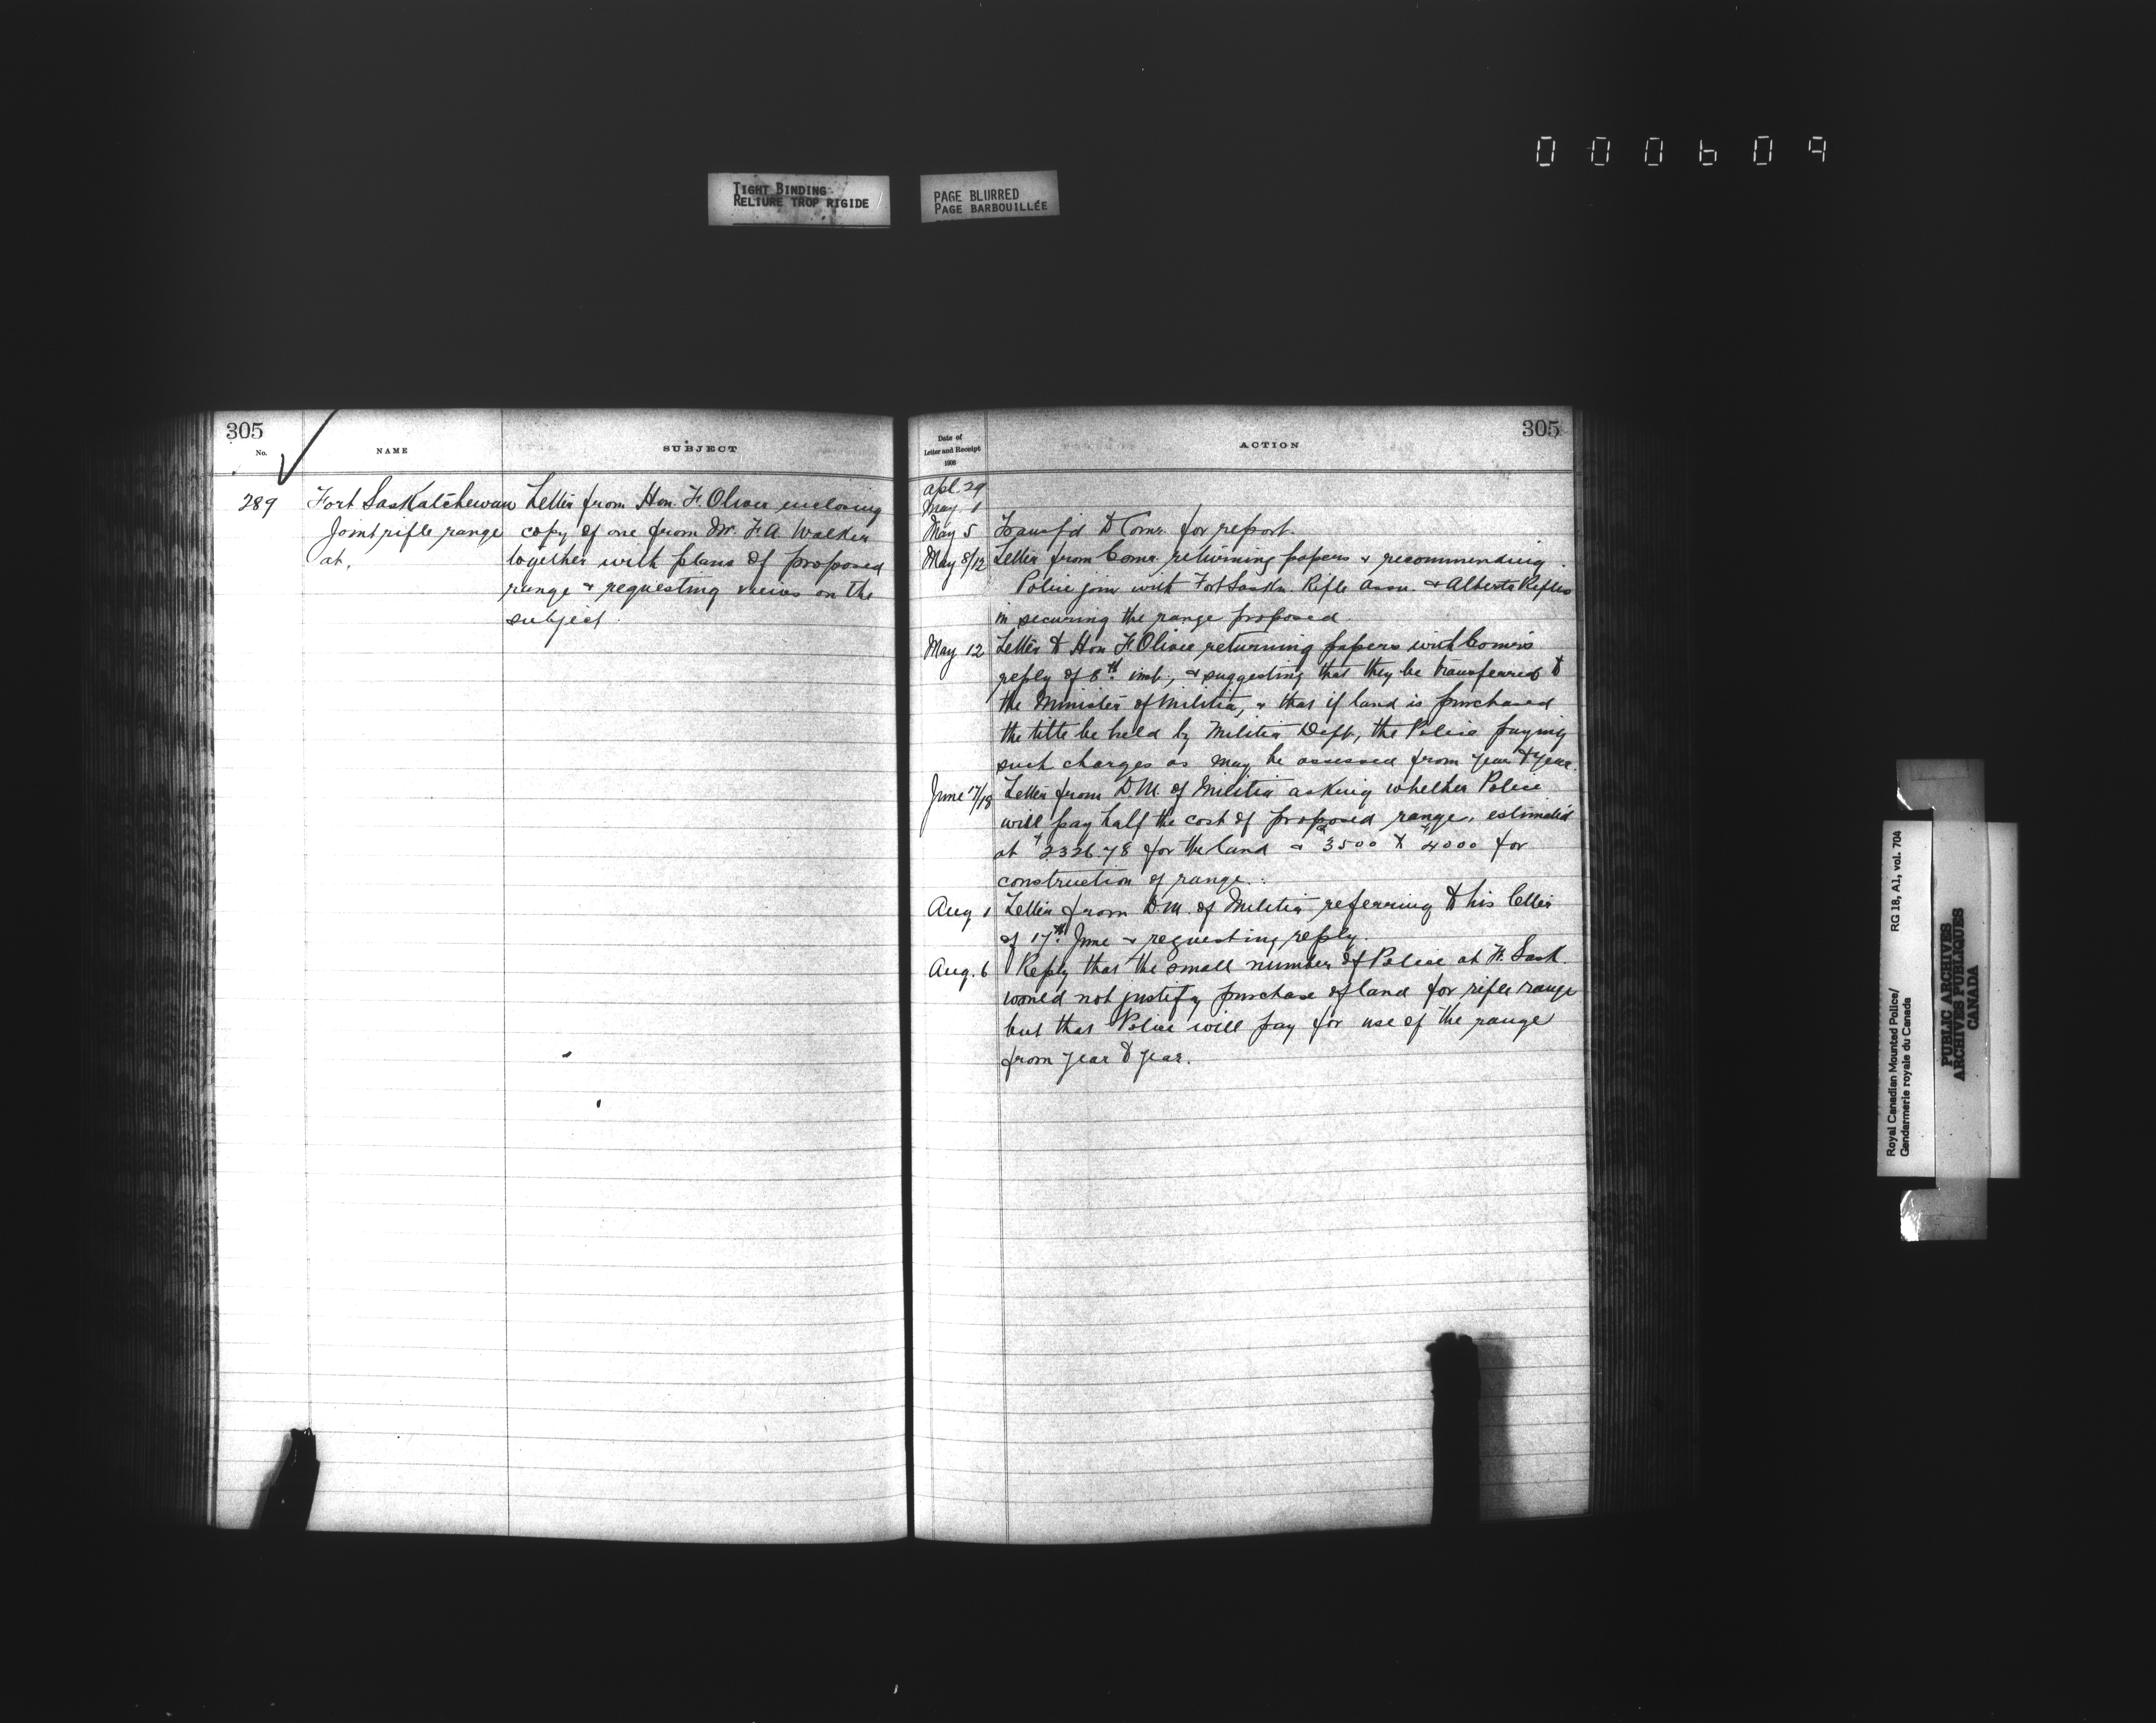 000609
TIGHT BINDING
RELIURE TROP RIGIDE
PAGE BLURRED
PAGE BARBOUILLÉE
305
No.
NAME
SUBJECT
289
Fort Saskatchewan
Joint rifle range
at.
Letter from Hon. F. Oliver enclosing
copy of one from Mr. F. A. Walker
together with plans of proposed
range & requesting views on the
subject.
305
Date of
Letter and Receipt
1908
ACTION
Apl. 29
May 1
May 5 Transf'd to Comr. for report.
May 8/12 Letter from Comr. returning papers & recommending
Police join with Fort Saskn. Rifle Assn. & Alberta Rifles
in securing the range proposed.
May 12 Letter to Hon F. Oliver returning papers with Comr's
reply of 8th inst., & suggesting that they be transferred to
the Minister of Militia, & that if land is purchased
the title be held by Militia Dept, the Police paying
such charges as may be assessed from year to year.
June 17/18 Letter from D.M. of Militia asking whether Police
will pay half the cost of proposed range, estimated
at $2326.78 for the land & $3500 to $4000 for
construction of range.
Aug 1 Letter from D.M. of Militia referring to his letter
of 17th June & requesting reply.
Aug. 6 Reply that the small number of Police at Ft. Sask.
would not justify purchase of land for rifle range
but that Police will pay for use of the range
from year to year.
Royal Canadian Mounted Police/
Gendarmerie royale du Canada
RG 18, A1, vol. 704
PUBLIC ARCHIVES
ARCHIVES PUBLIQUES
CANADA